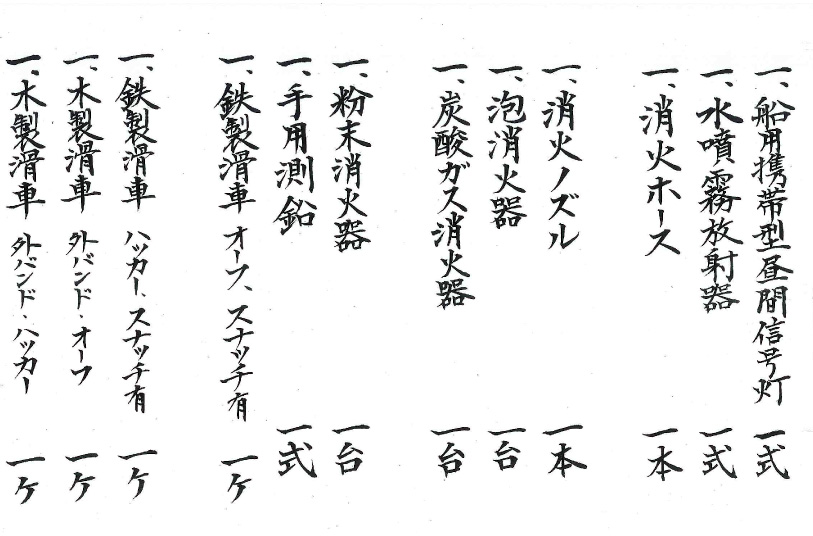 一、船用携帯型昼間信号灯 一式
一、水噴霧放射器 一式
一、消火ホース 一本
一、消火ノズル 一本
一、泡消火器 一台
一、炭酸ガス消火器 一台
一、粉末消火器 一台
一、手用測鉛 一式
一、鉄製滑車 オーフ、スナッチ有 一ケ
一、鉄製滑車 ハッカー、スナッチ有 一ケ
一、木製滑車 外バンド・オーフ 一ケ
一、木製滑車 外バンド・ハッカー 一ケ